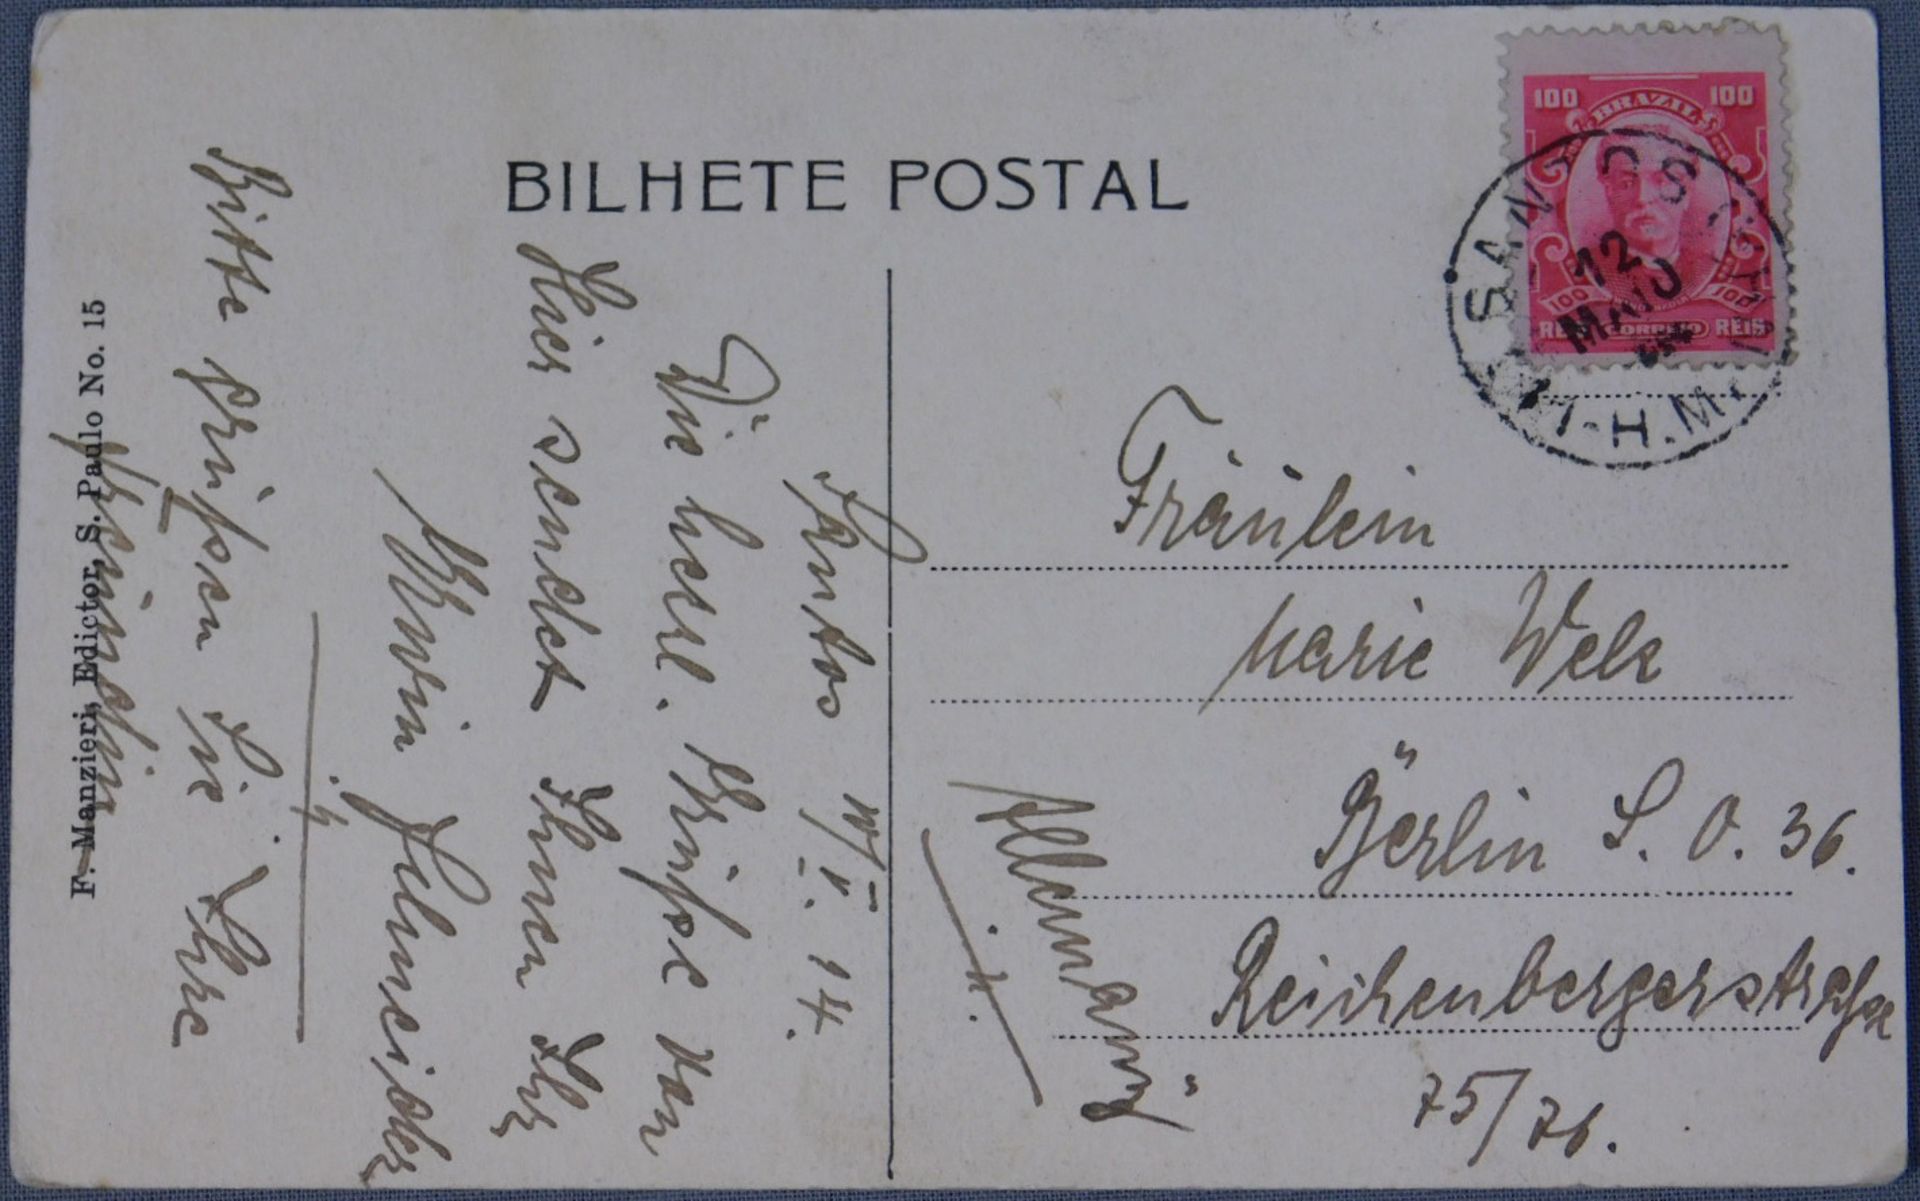 BILHETE POSTAL
100 BRAZIL 100
100 100
REIS CORREIO REIS
SANTOS
12
MAIO
F. Manzieri, Edictor, S. Paulo No. 15
Santos 10/V. 14.
Die herzl. Grüße von
Hier sendet Ihnen Ihr
Erwin Schneider
Bitte grüßen Sie Ihre
Freundin
Fräulein
Marie Welz
Berlin S. O. 36.
Reichenbergerstraße
75/76.
Allemanj